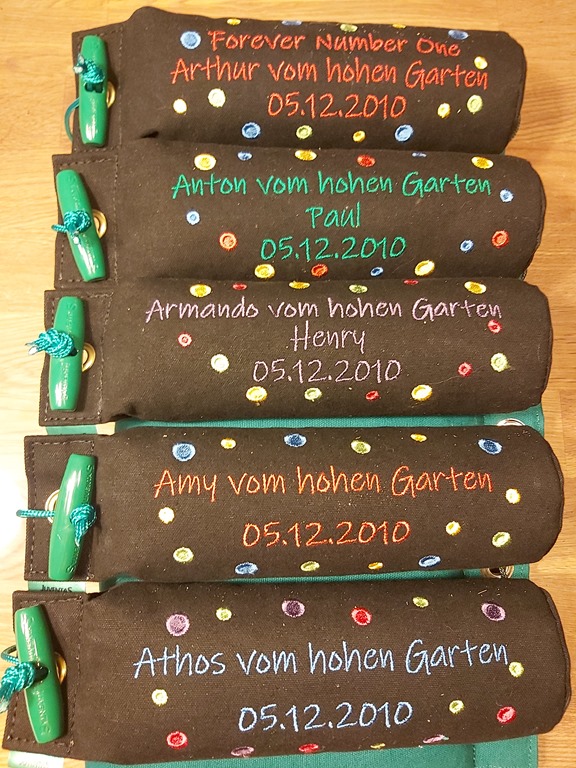 Forever Number One
Arthur vom hohen Garten
05.12.2010
Anton vom hohen Garten
Paul
05.12.2010
Armando vom hohen Garten
Henry
05.12.2010
Amy vom hohen Garten
05.12.2010
Athos vom hohen Garten
05.12.2010